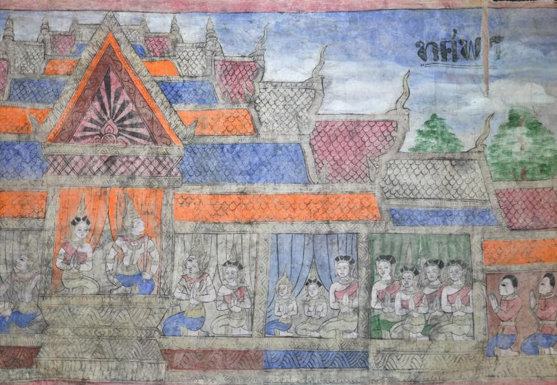 ทศพร